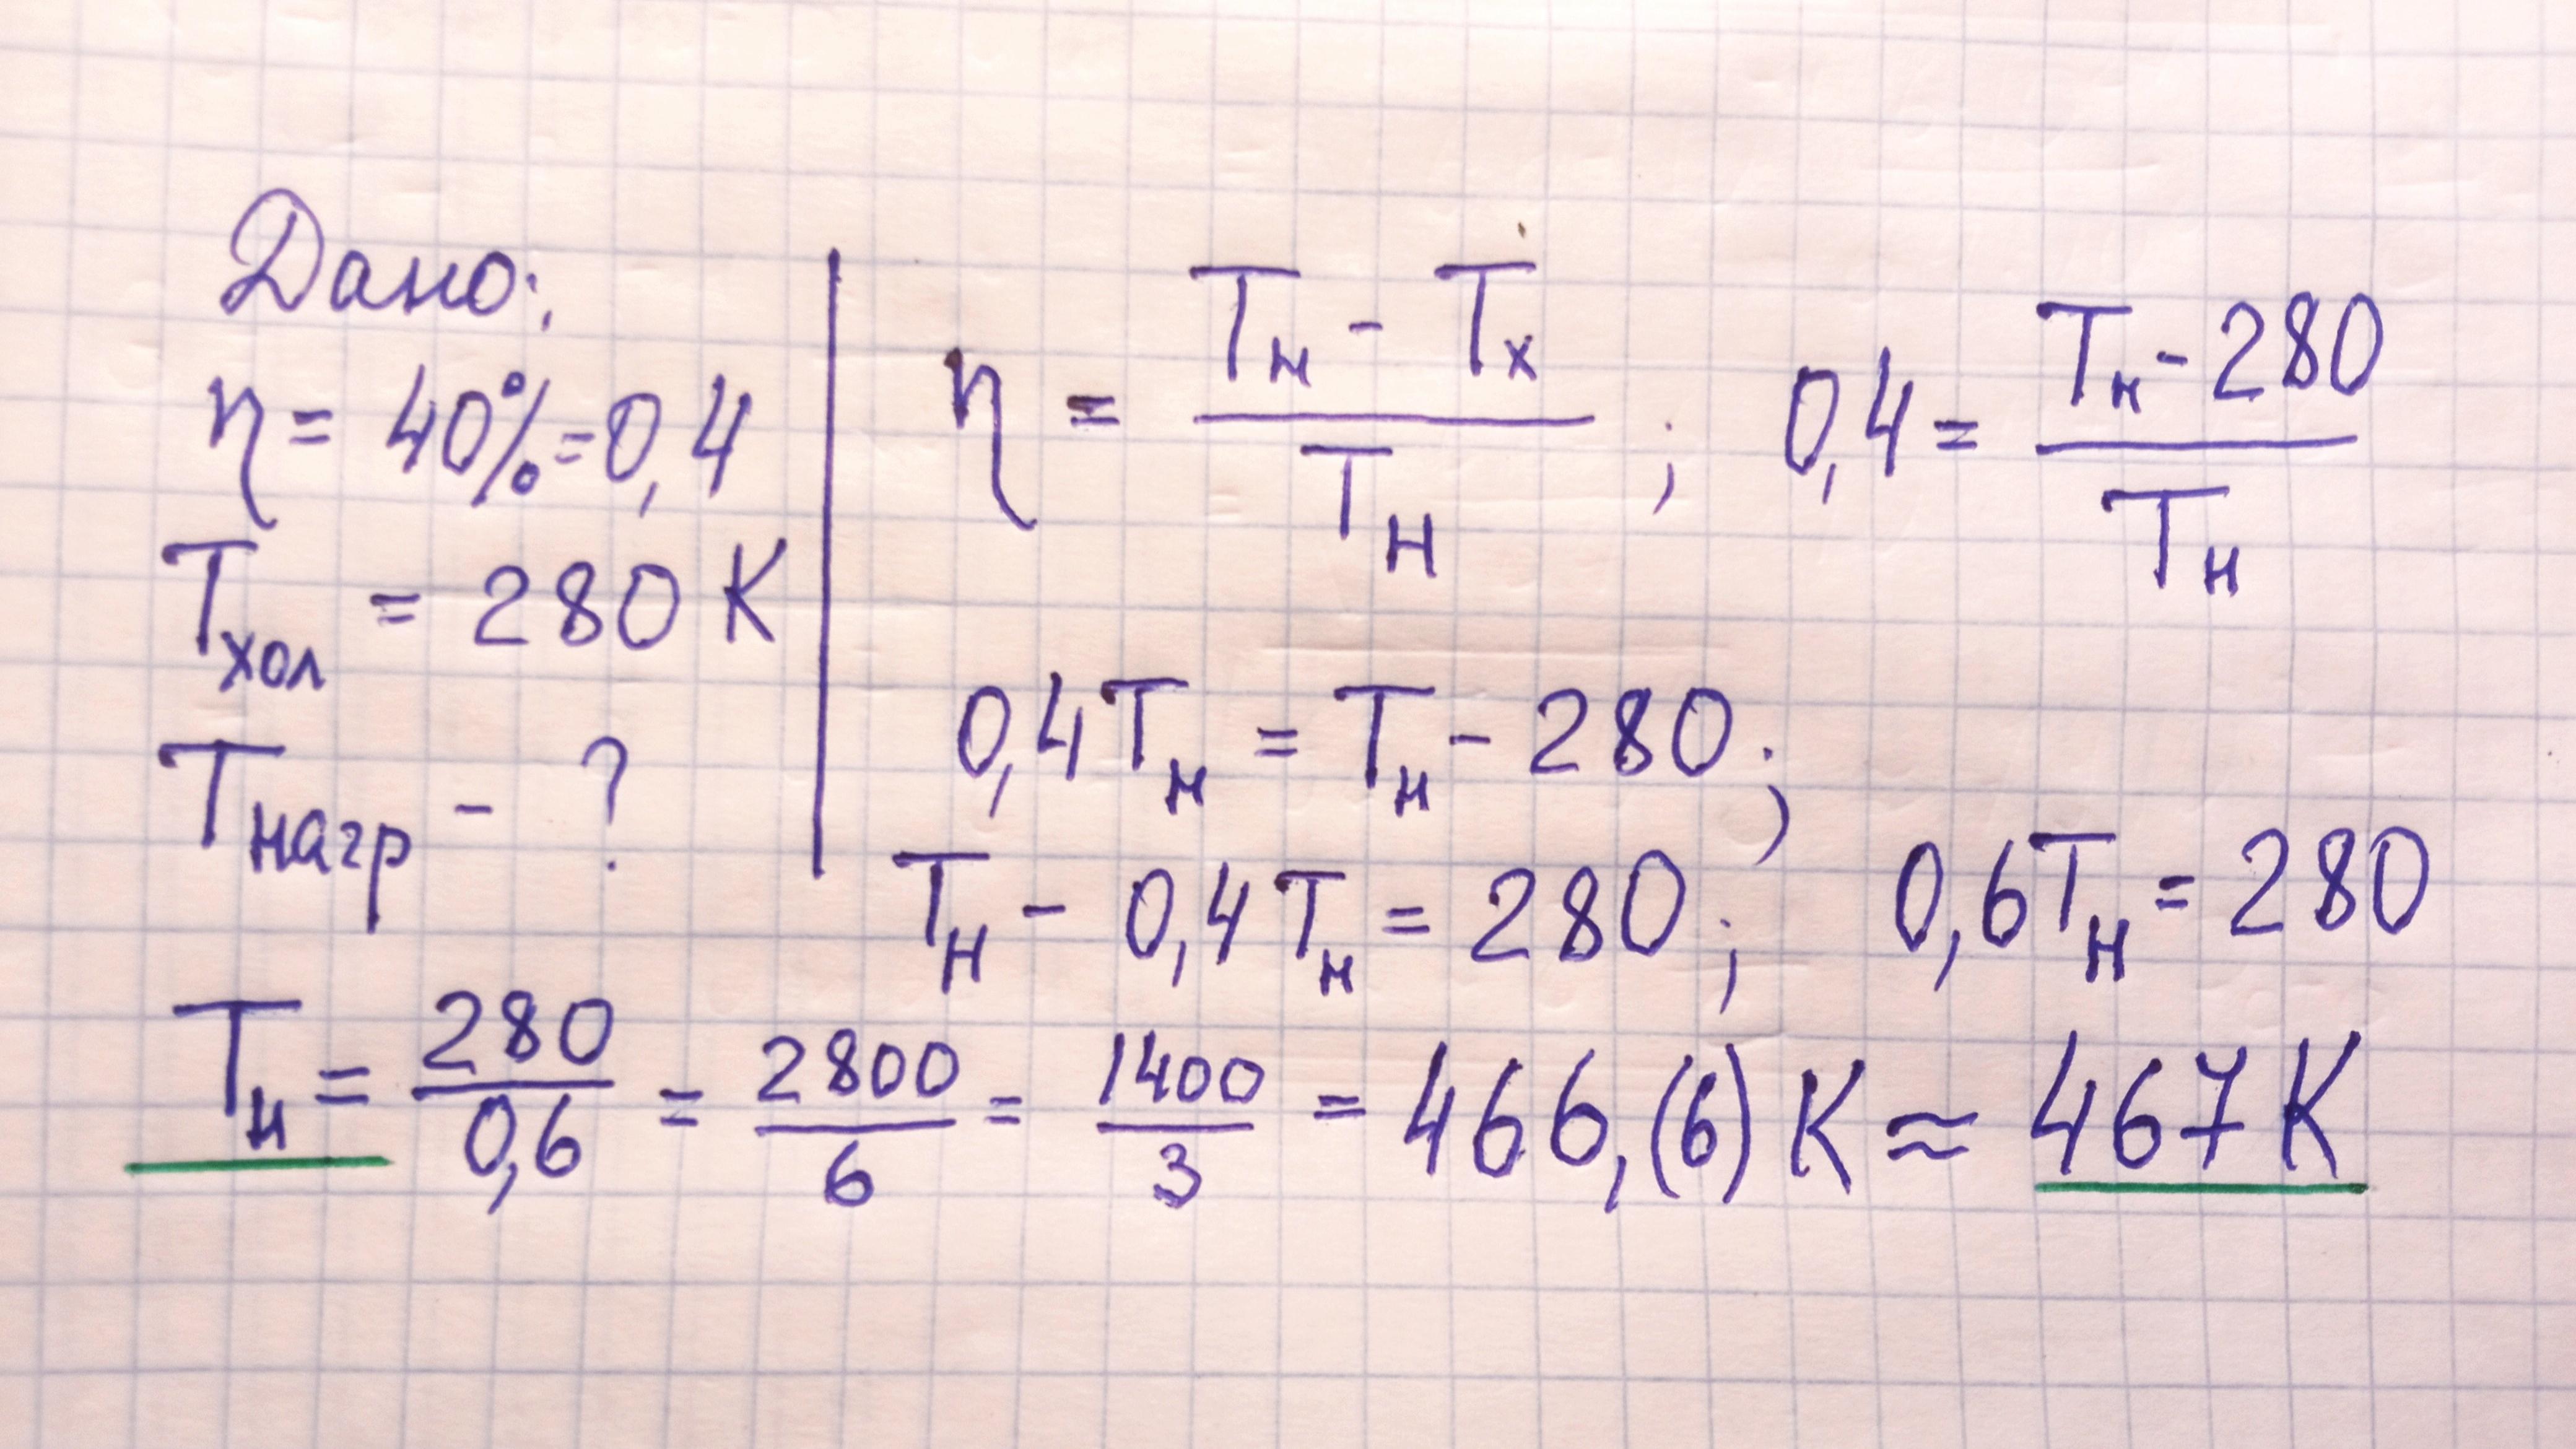 Дано:
η = 40% = 0,4
Tхол = 280 K
Tнагр - ?
η = (Tн - Tх) / Tн ; 0,4 = (Tн - 280) / Tн
0,4Tн = Tн - 280 ;
Tн - 0,4Tн = 280 ; 0,6Tн = 280
Tн = 280 / 0,6 = 2800 / 6 = 1400 / 3 = 466,(6) K ≈ 467 K